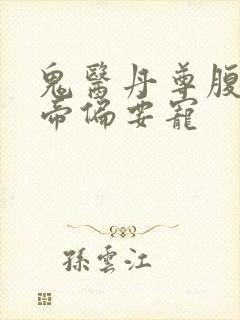 鬼醫丹尊腹
帝偏要寵
孫雲江